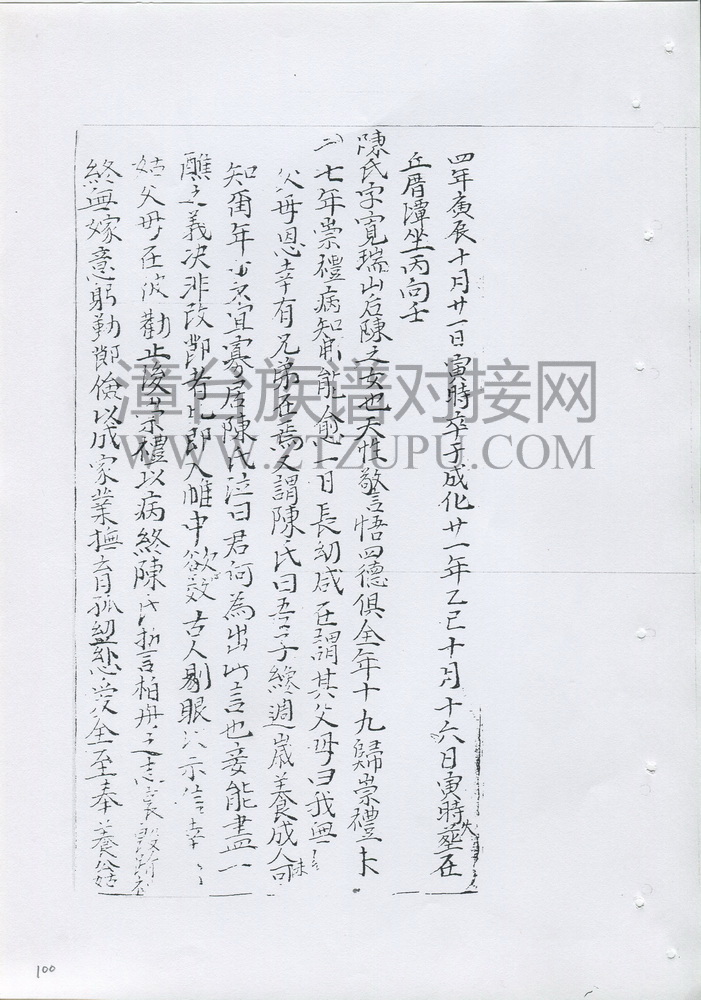 四年庚辰十月廿一日寅時卒于成化廿一年乙巳十月十六日寅時葬在
丘厝墇坐丙向壬
陳氏字寬瑞山后陳之女也天性敬言悟四德俱全年十九歸崇禮
七年崇禮病知能愈一日長幼咸在謂其父母曰我無
父母恩幸有兄弟在焉又謂陳氏曰吾子纔週歲養成人可
知爾年少不宜寡居陳氏泣曰君何為出此言也妾能盡一
醮之義决非改節者比即入帷中欲效古人剔眼以示信幸
姑父母在彼勸止後崇禮以病終陳氏抗言柏舟之志
終無嫁意躬勤節儉以成家業撫育孤幼慈愛全至奉養公姑
漳台族谱对接网
WWW.ZTZUPU.COM
100